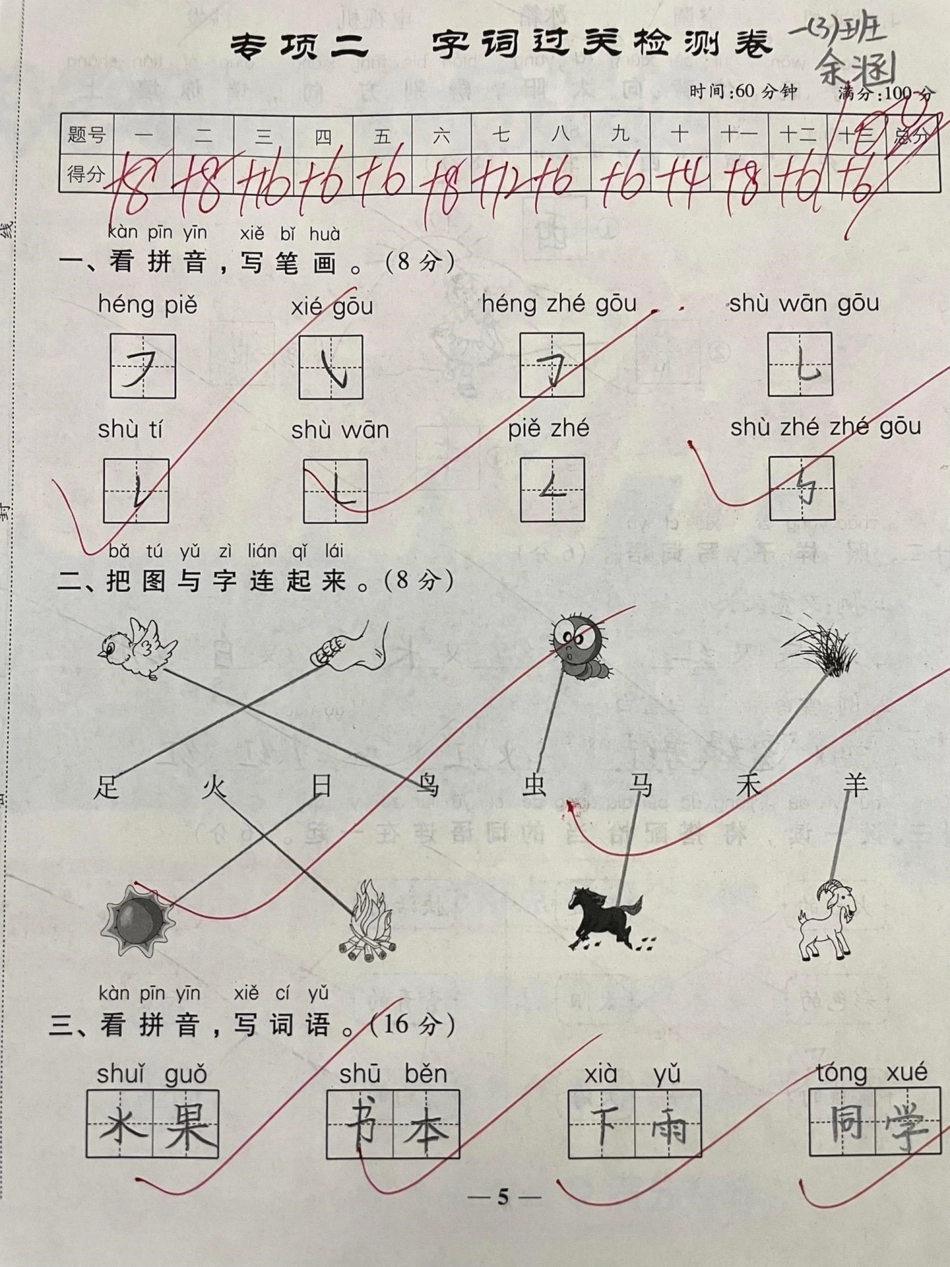 专项二 字词过关检测卷
一(3)班
余涵
时间:60分钟 满分:100分
题号 一 二 三 四 五 六 七 八 九 十 十一 十二 十三 总分
得分 +8 +8 +16 +6 +6 +8 +12 +6 +6 +4 +8 +6 +6
kàn pīn yīn xiě bǐ huà
一、看拼音,写笔画。(8分)
héng piě xié gōu héng zhé gōu shù wān gōu
㇇ ㇂ ㇆ ㇟
shù tí shù wān piě zhé shù zhé zhé gōu
㇙ ㇄ ㇜ ㇉
bǎ tú yǔ zì lián qǐ lái
二、把图与字连起来。(8分)
足 火 日 鸟 虫 马 禾 羊
kàn pīn yīn xiě cí yǔ
三、看拼音,写词语。(16分)
shuǐ guǒ shū běn xià yǔ tóng xué
水果 书本 下雨 同学
— 5 —
线
封